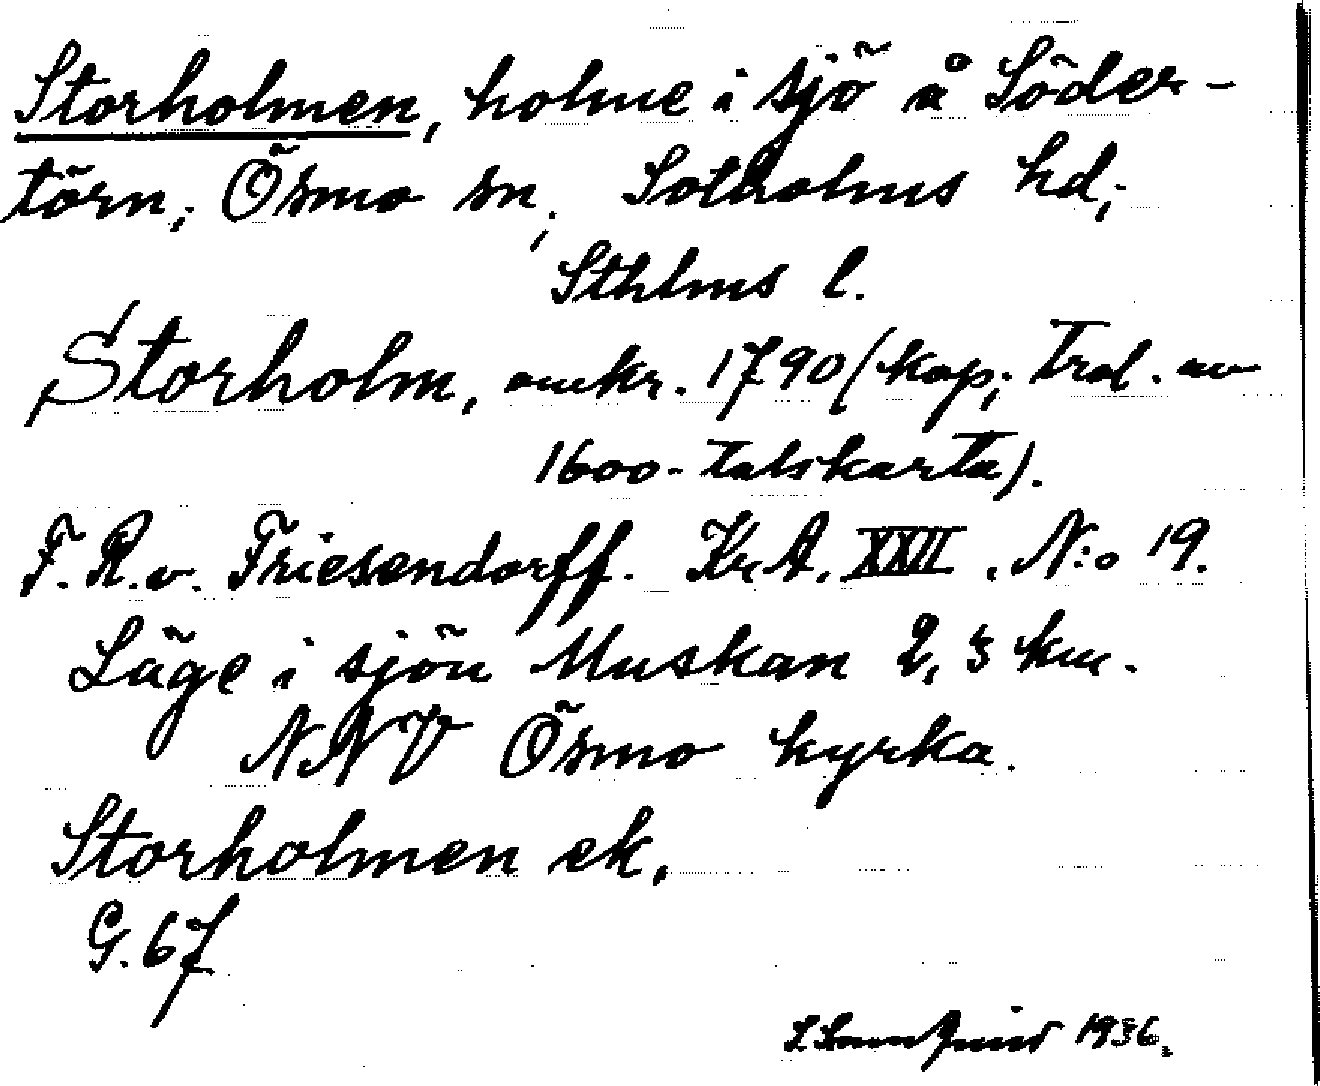 Storholmen, holme i sjö å Söder-
törn; Ösmo sn; Sotholms hd;
Sthlms l.
Storholm, omkr. 1790 (kop; Trol. av
1600-talskarta).
F. R. v. Friesendorff. Kr.A. XXII. N:o 19.
Läge i sjön Muskan 2,3 km.
NNV Ösmo kyrka.
Storholmen ek,
G. 67
1936.